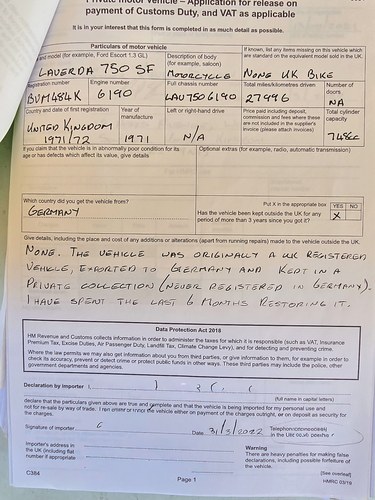 Private motor vehicle – Application for release on
payment of Customs Duty, and VAT as applicable
It is in your interest that this form is completed in as much detail as possible.
Particulars of motor vehicle
and model (for example, Ford Escort 1.3 GL)
LAVERDA 750 SF
Description of body
(for example, saloon)
MOTORCYCLE
If known, list any items missing on this vehicle which
are standard on the equivalent model sold in the UK.
NONE UK BIKE
Registration number
BVM484K
Engine number
6190
Full chassis number
LAV7506190
Total miles/kilometres driven
27996
Number of
doors
NA
Country and date of first registration
UNITED KINGDOM
1971/72
Year of
manufacture
1971
Left or right-hand drive
N/A
Price paid including deposit,
commission and fees where these
are not included in the supplier's
invoice (please attach invoices)
Total cylinder
capacity
748cc
If you claim that the vehicle is in abnormally poor condition for its
age or has defects which affect its value, give details
Optional extras (for example, radio, automatic transmission)
Which country did you get the vehicle from?
GERMANY
Put X in the appropriate box
YES NO
Has the vehicle been kept outside the UK for any
period of more than 3 years since you got it?
X
Give details, including the place and cost of any additions or alterations (apart from running repairs) made to the vehicle outside the UK.
NONE. THE VEHICLE WAS ORIGINALLY A UK REGISTERED
VEHICLE, EXPORTED TO GERMANY AND KEPT IN A
PRIVATE COLLECTION (NEVER REGISTERED IN GERMANY).
I HAVE SPENT THE LAST 6 MONTHS RESTORING IT.
Data Protection Act 2018
HM Revenue and Customs collects information in order to administer the taxes for which it is responsible (such as VAT, Insurance
Premium Tax, Excise Duties, Air Passenger Duty, Landfill Tax, Climate Change Levy), and for detecting and preventing crime.
Where the law permits we may also get information about you from third parties, or give information to them, for example in order to
check its accuracy, prevent or detect crime or protect public funds in other ways. These third parties may include the police, other
government departments and agencies.
Declaration by importer I,
(full name in capital letters)
declare that the particulars given above are true and complete and that the vehicle is being imported for my personal use and
not for re-sale by way of trade. I now enter the vehicle either on payment of the charges outright, or on deposit as security for
the charges.
Signature of importer
Date 31/3/2022
Telephone
in the UK
Importer's address in
the UK (including flat
number if appropriate
Warning
There are heavy penalties for making false
declarations, including possible forfeiture of
the vehicle.
(See overleaf)
C384
Page 1
HMRC 03/19